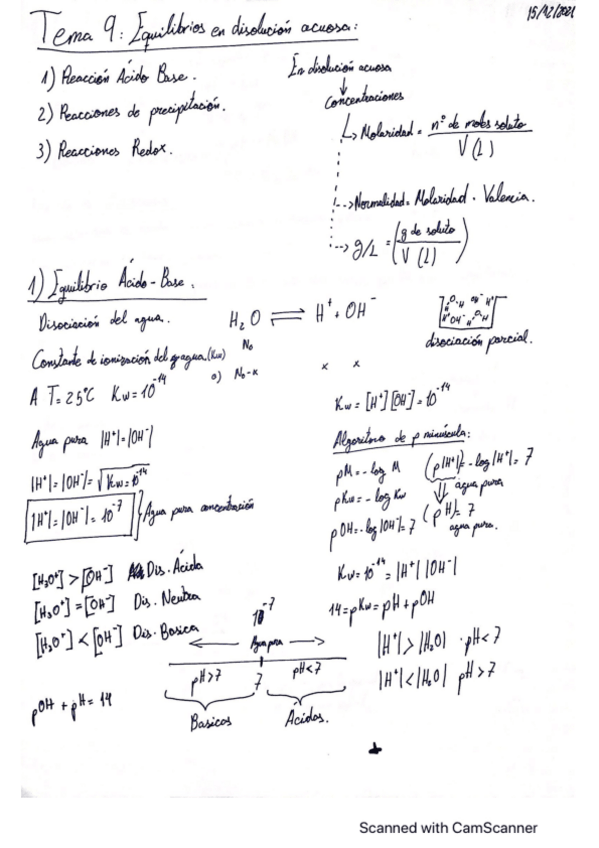 15/12/2021
Tema 9: Equilibrios en disolución acuosa:
1) Reacción Ácido Base.
2) Reacciones de precipitación.
3) Reacciones Redox.
En disolución acuosa
↓
Concentraciones
↳ Molaridad = nº de moles soluto / V (L)
--> Normalidad = Molaridad · Valencia.
--> g/L = (g de soluto / V (L))
1) Equilibrio Ácido-Base:
Disociación del agua.
H₂O ⇌ H⁺ + OH⁻
N₀
o) N₀-x x x
disociación parcial.
Constante de ionización del agua (Kw)
A T = 25ºC Kw = 10⁻¹⁴
Kw = [H⁺][OH⁻] = 10⁻¹⁴
Agua pura |H⁺| = |OH⁻|
|H⁺| = |OH⁻| = √Kw = 10⁻¹⁴
|H⁺| = |OH⁻| = 10⁻⁷ } Agua pura concentración
Algoritmo de p minúscula:
pM = -log M
(p|H⁺| = -log|H⁺| = 7
agua pura
pKw = -log Kw
(pH) = 7
agua pura.
pOH = -log|OH⁻| = 7
Kw = 10⁻¹⁴ = |H⁺| |OH⁻|
14 = pKw = pH + pOH
[H₃O⁺] > [OH⁻] Dis. Ácida
[H₃O⁺] = [OH⁻] Dis. Neutra
[H₃O⁺] < [OH⁻] Dis. Basica
10⁻⁷
← Agua pura →
pH>7 7 pH<7
Basicos Ácidos.
|H⁺| > |H₂O| · pH < 7
|H⁺| < |H₂O| pH > 7
pOH + pH = 14
Scanned with CamScanner